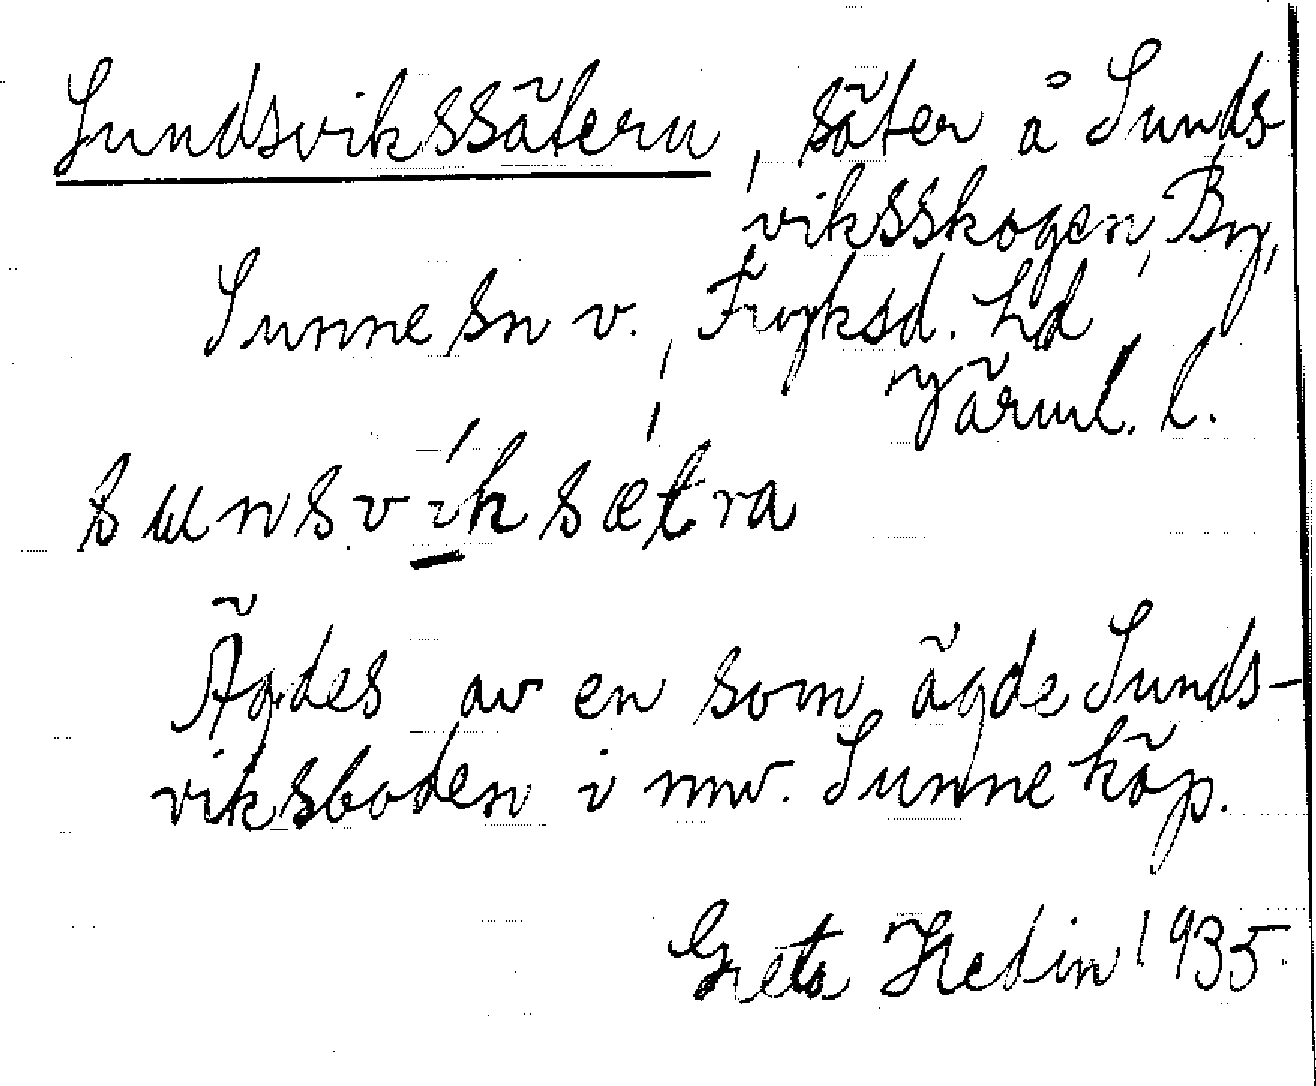 Sundsvikssätern, säter å Sunds-
viksskogen, By,
Sunne sn v., Fryksd. hd
Värml. l.
sunsviksætra
Ägdes av en som ägde Sunds-
viksboden i nuv. Sunne köp.
Greta Hedin 1935.